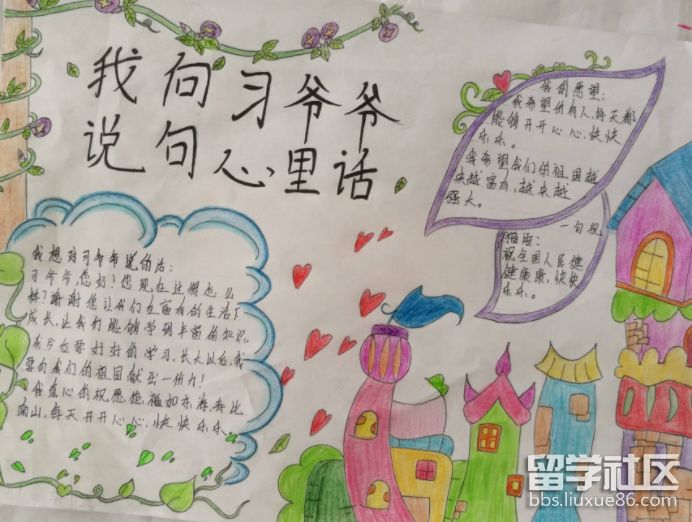 我向习爷爷
说句心里话
我的愿望:
我希望所有人,每天都
能够开开心心,快快
乐乐。
我希望我们的祖国越
来越富有,越来越
强大。
一句祝
福语:
祝全国人民健
健康康,快快
乐乐。
我想对习爷爷说的话:
习爷爷,您好!您现在过得怎么
样?谢谢您让我们在富有的生活下
成长,让我们能够学到丰富的知识。
我今后要好好的学习,长大以后,我
要向我们的祖国献出一份力!
我衷心的祝愿您,福如东海寿比
南山,每天开开心心,快快乐乐。
留学社区
bbs.liuxue86.com